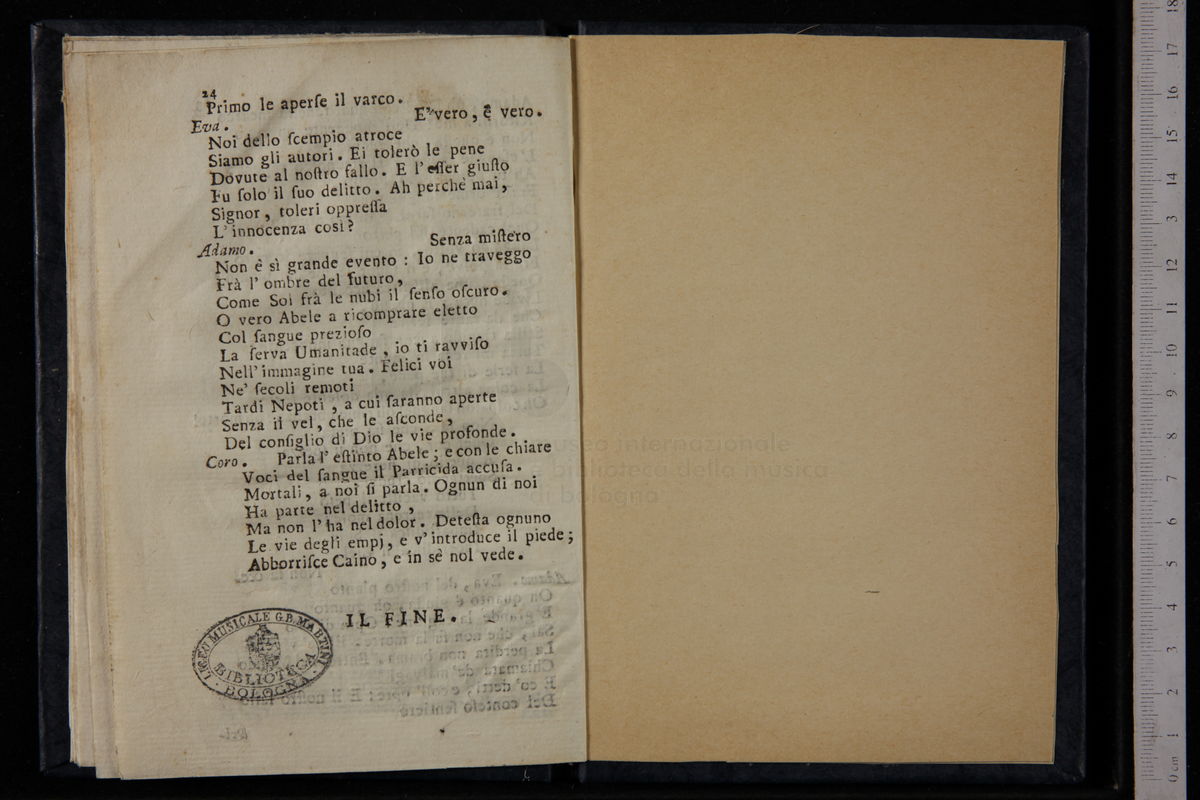 24
Primo le aperſe il varco.
E' vero, è vero.
Eva.
Noi dello ſcempio atroce
Siamo gli autori. Ei tolerò le pene
Dovute al noſtro fallo. E l'eſſer giuſto
Fu ſolo il ſuo delitto. Ah perchè mai,
Signor, toleri oppreſſa
L'innocenza così?
Senza miſtero
Adamo.
Non è sì grande evento: Io ne traveggo
Frà l'ombre del futuro,
Come Sol frà le nubi il ſenſo oſcuro.
O vero Abele a ricomprare eletto
Col ſangue prezioſo
La ſerva Umanitade, io ti ravviſo
Nell'immagine tua. Felici voi
Ne' ſecoli remoti
Tardi Nepoti, a cui ſaranno aperte
Senza il vel, che le aſconde,
Del conſiglio di Dio le vie profonde.
Coro. Parla l'eſtinto Abele; e con le chiare
Voci del ſangue il Parricida accuſa.
Mortali, a noi ſi parla. Ognun di noi
Ha parte nel delitto,
Ma non l'ha nel dolor. Deteſta ognuno
Le vie degli empj, e v'introduce il piede;
Abborriſce Caino, e in sè nol vede.
IL FINE.
LICEO MUSICALE G.B. MARTINI
BIBLIOTECA
BOLOGNA
museo internazionale
e biblioteca della musica
di bologna
0 cm 1 2 3 4 5 6 7 8 9 10 11 12 13 14 15 16 17 18